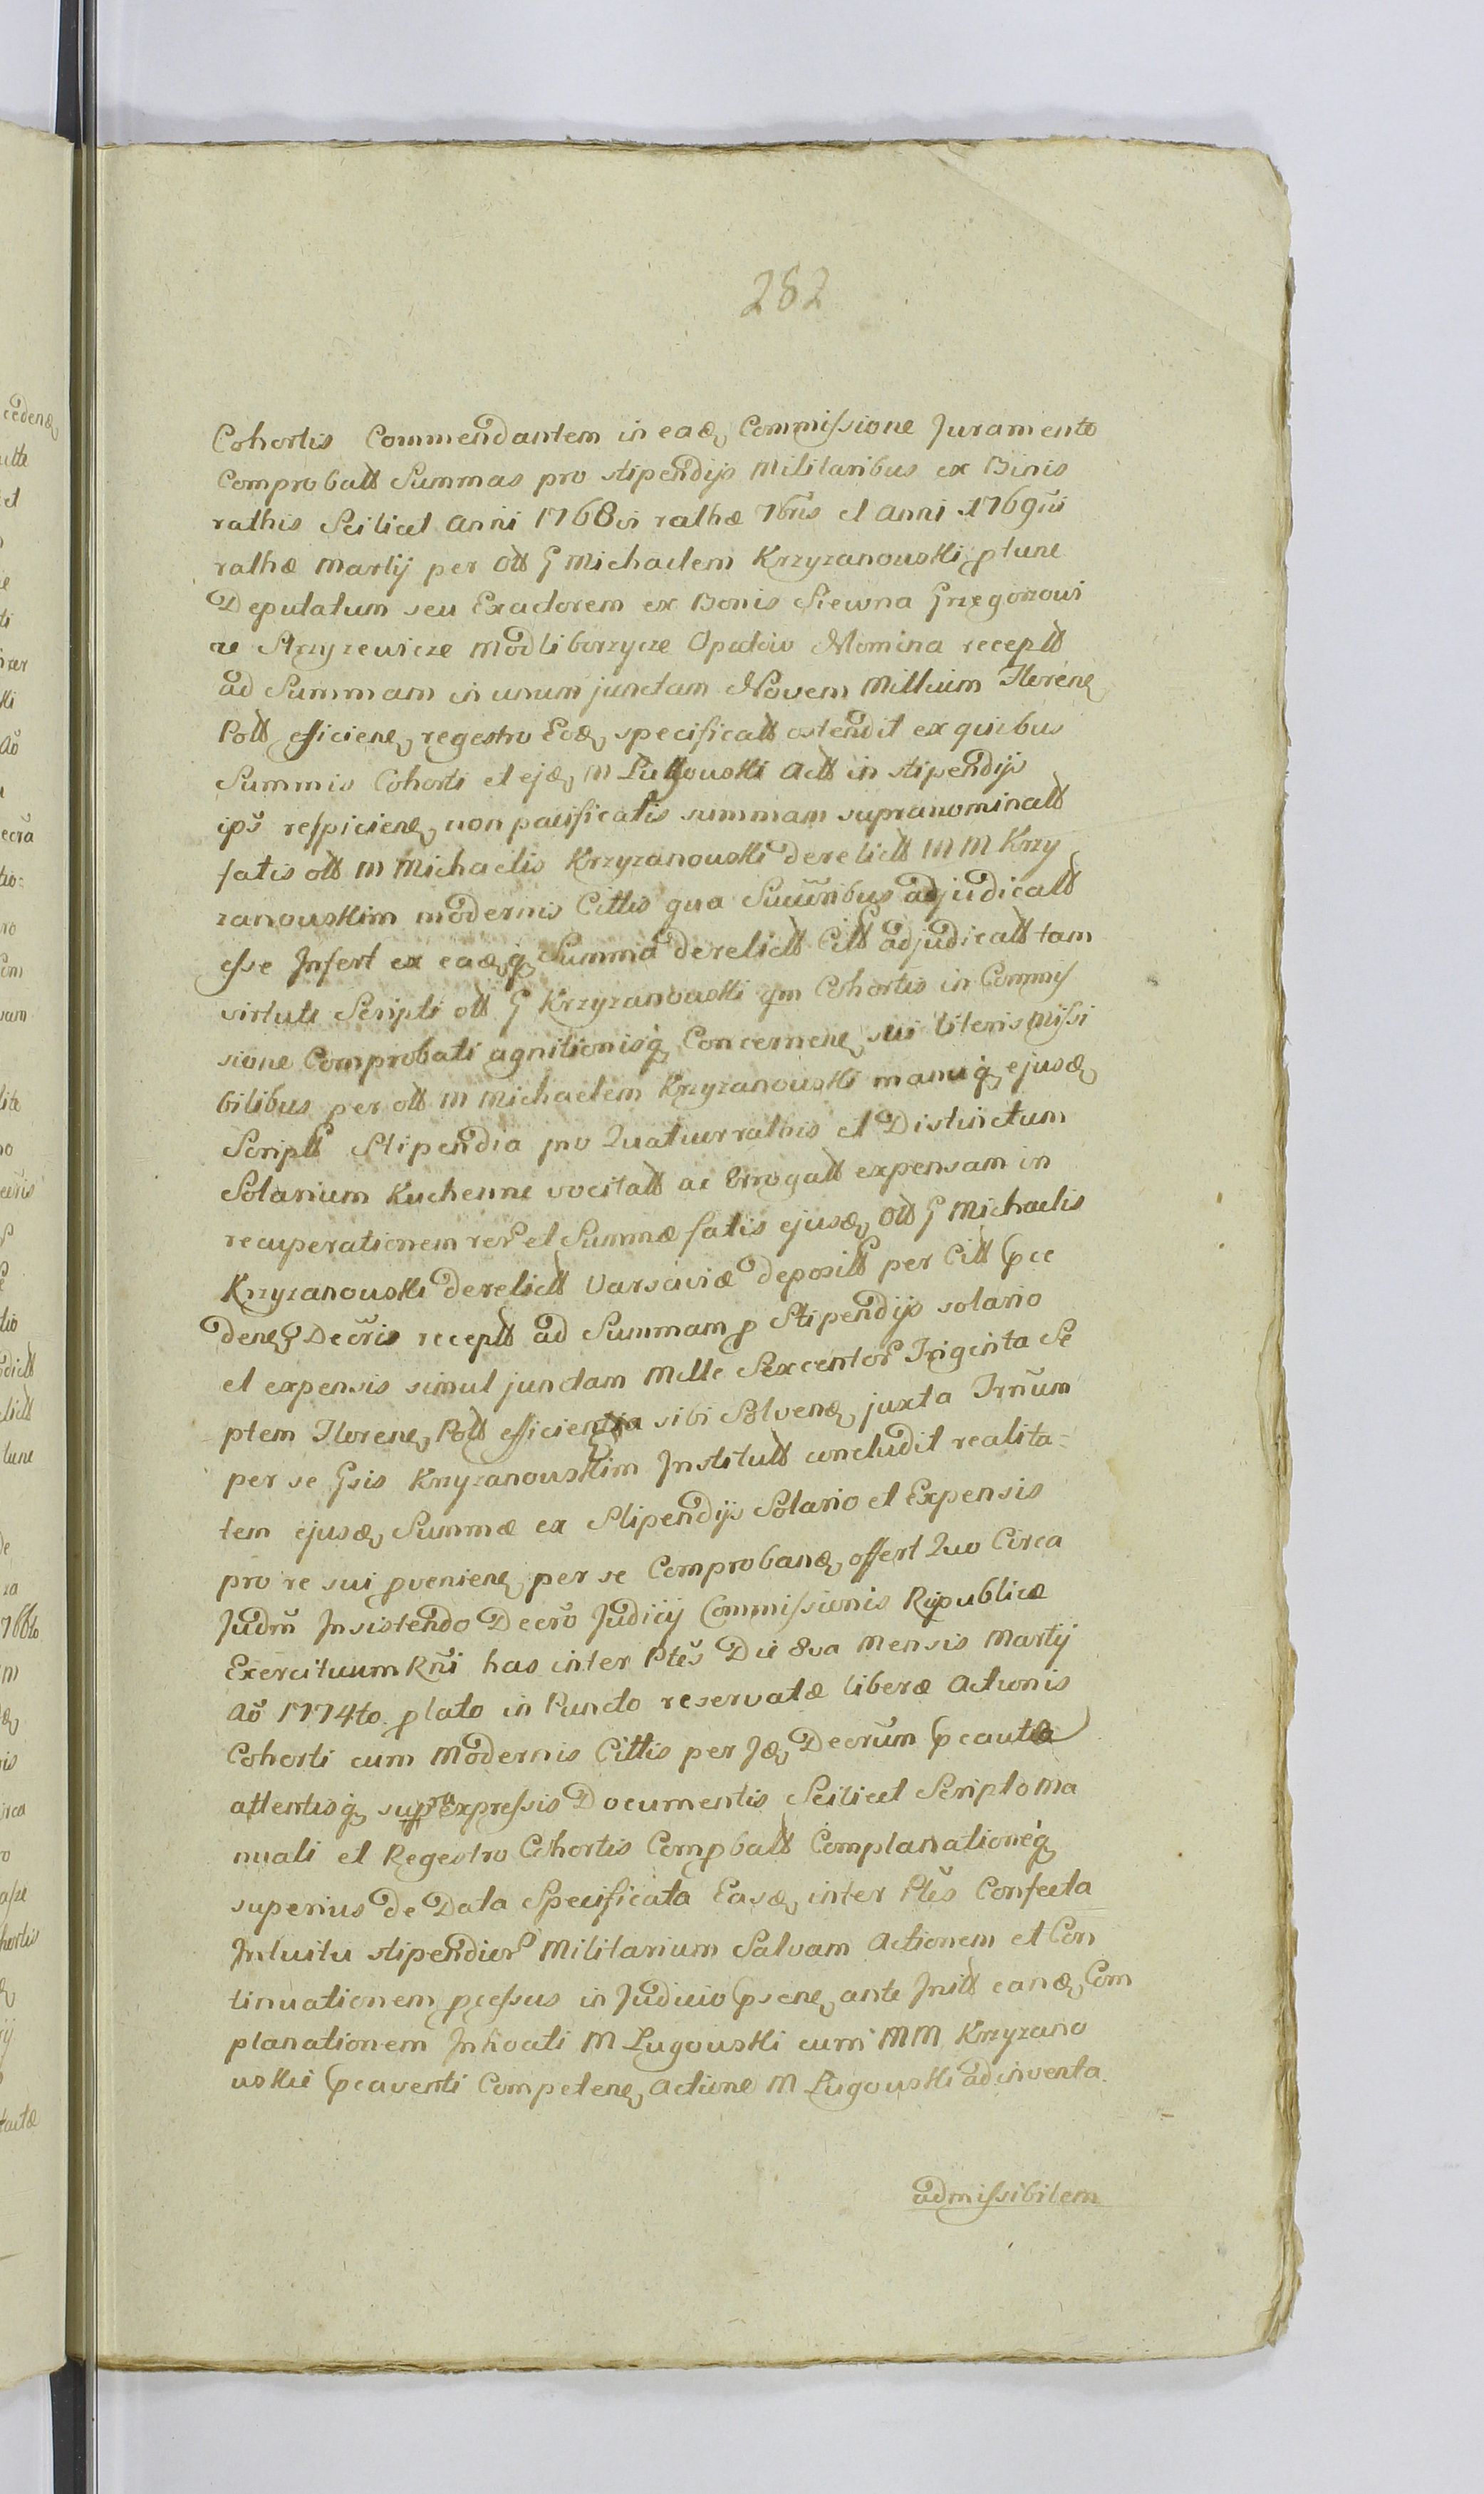 282
Cohortis Commendantem in eaд Commissione Juramento
Comprobatt Summas pro stipendijs Militaribus ex Binis
rathis Scilicet Anni 1768vi rathæ 7bris et Anni 1769ni
rathæ Martij per Ott G Michaelem Krzyzanowski ptunc
Deputatum seu Exactorem ex Bonis Siewna Grzegorzowi
ce Strzyzewicze Modliborzycze Opatow Nomina receptt
ad Summam in unum junctam Novem Millium Floreñ
Pott efficieñ regestro Eoд specificatt ostendit ex quibus
Summis Cohorti et ejд M Lugowski Actt in stipendijs
ips respicieñ non pacificatis summam supranominatt
fatis ott M Michaelis Krzyzanowski derelictt MM Krzy
zanowskim modernis Cittis qua Succribus adjudicatt
esse Infert ex eaдq Summa derelictt Citt adjudicatt tam
virtute Scripti ott G Krzyzanowski qm Cohortis in Commis
sione Comprobati agnitionisq Concerneñ sui literis Missi
bilibus per ott M Michaelem Krzyzanowski manuq ejusд
Scriptt Stipendia pro Quatuor rathis et Distinctum
Solarium Kuchenne vocitatt ac Errogatt expensam in
recuperationem rer et Summæ fatis ejusд Ott G Michaelis
Krzyzanowski derelictt Varsaviæ depositt per Citt pce
deneq Decris receptt ad Summam p Stipendijs solario
et expensis simul junctam Mille Sexcentor Triginta Se
ptem Floreñ Pott efficien sibi Solveñ juxta Trnum
per se Gsis Krzyzanowskim Institutt concludit realita=
tem ejusд Summæ ex Stipendijs Solario et Expensis
pro re sui pvenieñ per se Comprobanд offert Quo Circa
Judm Insistendo Decro Judicij Commissionis Rzpublicæ
Exercituum Rni has inter Ptes Die 8va Mensis Martij
Ao 1774to plato in Puncto reservatæ liberæ Actionis
Cohorti cum Modernis Cittis per Jд Decrum pcautæ
attentisq supra Expressis Documentis Scilicet Scripto Ma
nuali et Regestro Cohortis Compbatt Complanationeq
superius de Data Specificata Easд inter Ptes Confecta
Intuitu stipendior Militarium Salvam Actionem et Con
tinuationem pcessus in Judicio pseñ ante Initt eanд Com
planationem Inhoati M Lugowski cum MM Krzyzano
wskie pcaventi Competeñ Actione M Lugowski adinventa
admissibilem